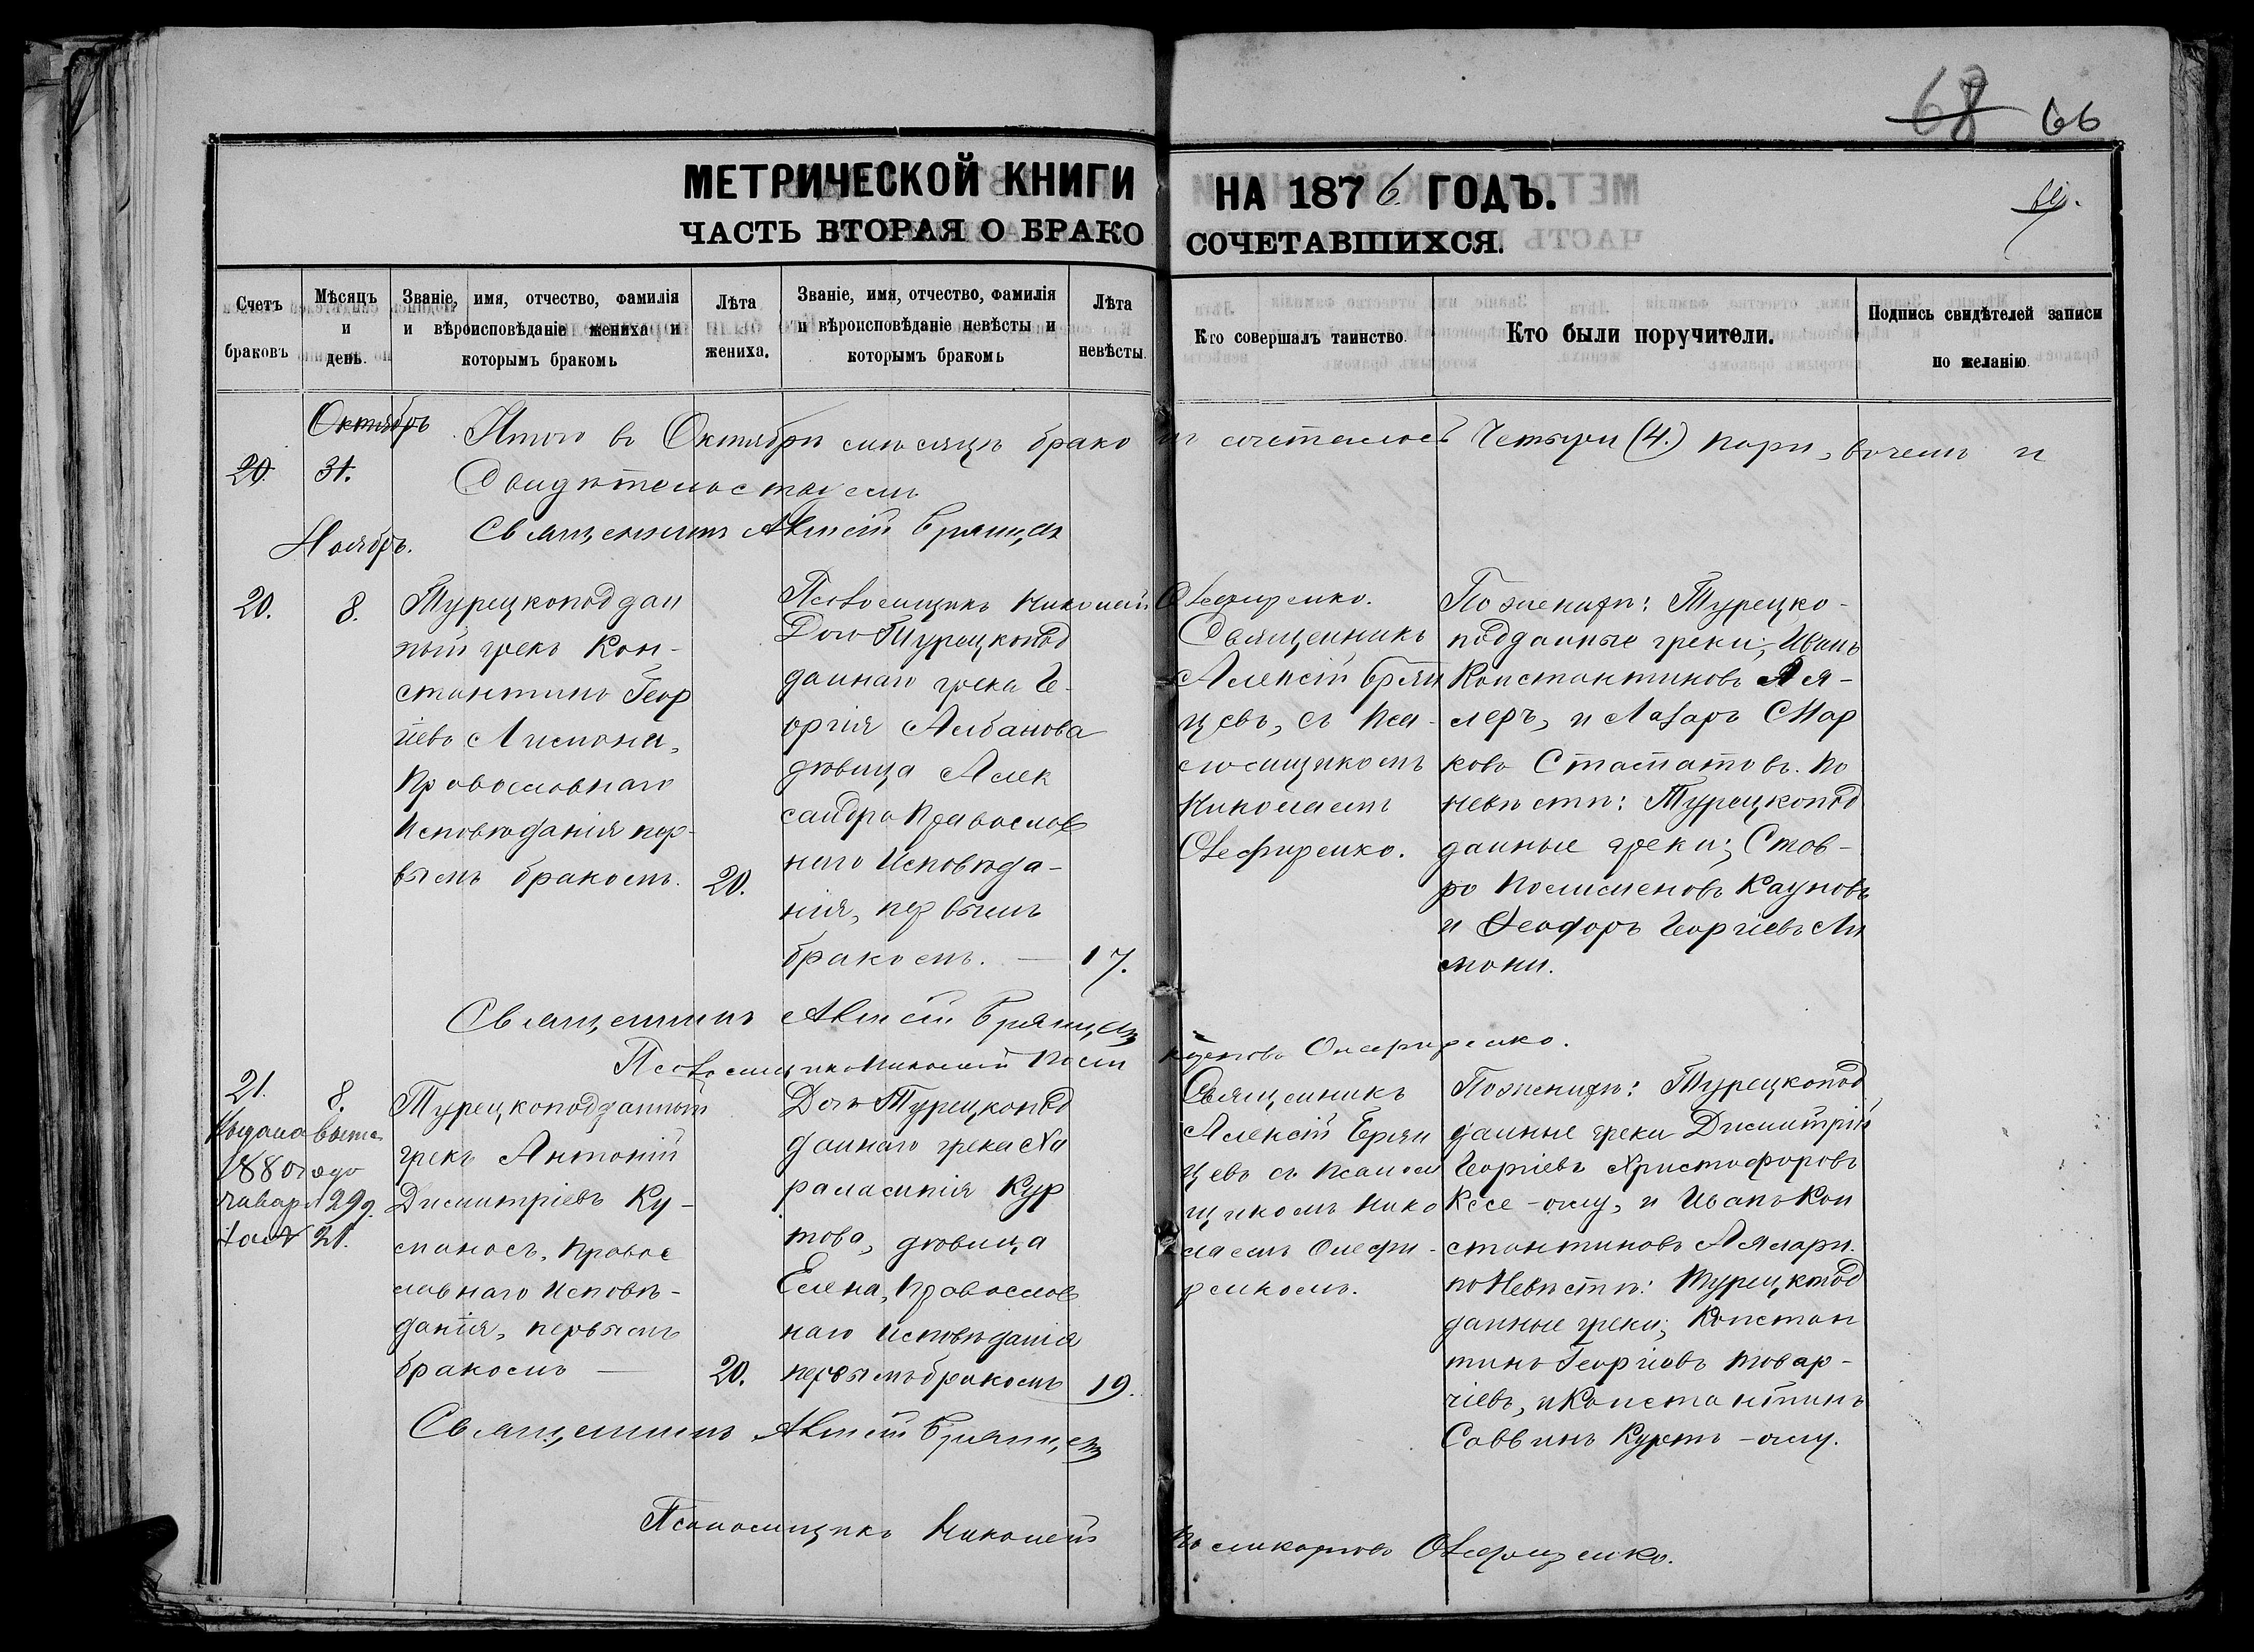 68 66
МЕТРИЧЕСКОЙ КНИГИ НА 1876 ГОДЪ.
ЧАСТЬ ВТОРАЯ О БРАКОСОЧЕТАВШИХСЯ.
Счетъ браковъ
Мѣсяцъ и день.
Званіе, имя, отчество, фамилія и вѣроисповѣданіе жениха и которымъ бракомъ
Лѣта жениха.
Званіе, имя, отчество, фамилія и вѣроисповѣданіе невѣсты и которымъ бракомъ
Лѣта невѣсты.
Кто совершалъ таинство.
Кто были поручители.
Подпись свидѣтелей записи по желанію.
Октябрь
20 31.
Итого въ Октябрѣ мѣсяцѣ брако сочеталось Четыри (4.) пары, в чемъ и
Свидѣтельствуемъ
Священникъ Алексій Брянцевъ
Псаломщикъ Николай Олефиренко.
Ноябрь.
20.
8.
Турецкоподдан
ный грекъ Кон-
стантинъ Геор
гіевъ Лимони,
Православнаго
Исповѣданія пер-
вымъ бракомъ.
20.
Дочь Турецкопод
даннаго грека Ге-
оргія Албанова
дѣвица Алек
сандра Православ
наго Исповѣда-
нія, первымъ
бракомъ.
17.
Священникъ
Алексій Брян
цевъ, съ Пса-
ломщикомъ
Николаемъ
Олефиренко.
По женихѣ: Турецко-
подданные греки; Иванъ
Константиновъ Аля-
леръ, и Лазарь Мар
ковъ Стаматовъ. По
невѣстѣ: Турецкопод
данные греки; Став-
ро Посмисменовъ Кауновъ
и Ѳеодоръ Георгіевъ Ли
мони.
Священникъ Алексій Брянцевъ
Псаломщикъ Николай Поликарповъ Олефиренко.
21.
8.
Выдана выпис
1880 года
Января 29 д.
за № 21.
Турецкоподданный
грекъ Антоній
Димитріевъ Ку-
сманосъ, Правос
лавнаго Исповѣ-
данія, первымъ
бракомъ
20.
Дочь Турецкопод
даннаго грека Ха
ралампія Кур
това, дѣвица
Елена, Православ
наго Исповѣданія
первымъ бракомъ
19.
Священникъ
Алексій Брян
цевъ съ Псалом
щикомъ Нико
лаемъ Олефи-
ренкомъ.
По женихѣ: Турецкопод
данные греки Димитрій
Георгіевъ Христофоровъ
Кесе-оглу, и Иванъ Кон
стантиновъ Аляляри.
по Невѣстѣ: Турецкопод
данные греки; Констан
тинъ Георгіевъ Товар-
чіевъ, и Константинъ
Саввинъ Куртъ-оглу.
Священникъ Алексій Брянцевъ
Псаломщикъ Николай Поликарповъ Олефиренко.